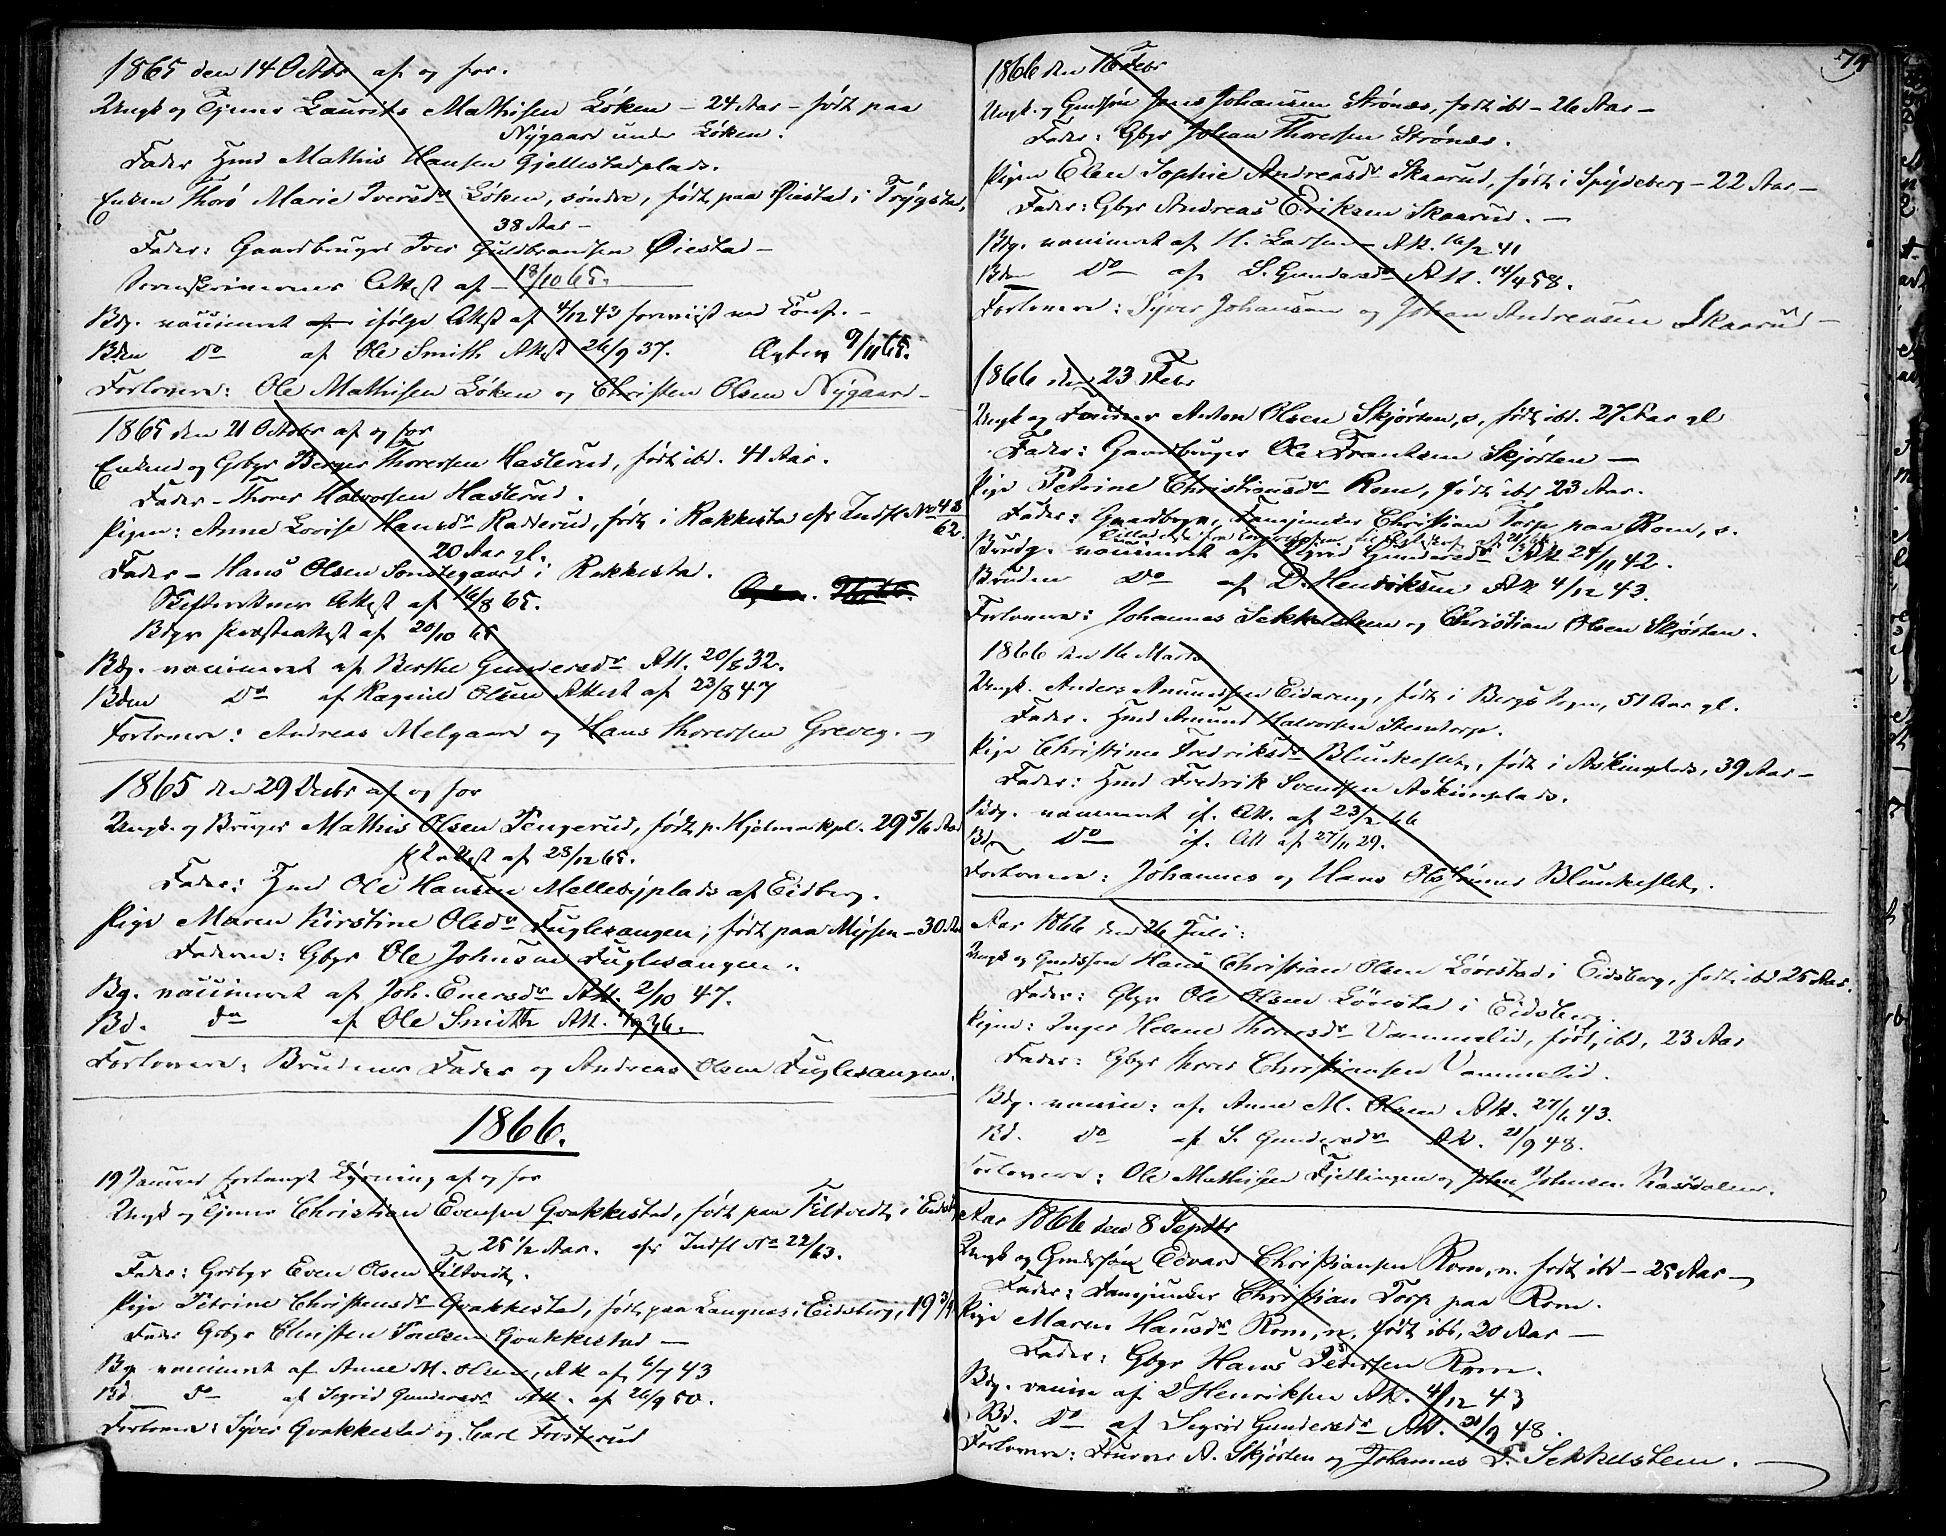 1865 den 14 Octbr af og for.
Ungk og Tjener Laurits Mathisen Løken - 24 Aar - født paa
Nygaard under Løken.
Fader Hmd Mathis Hansen Gjellestadplads.
Enken Thorø Marie Iversdr Løken, søndre, født paa Øiestad i Trygstad,
38 Aar -
Fader: Gaardbruger Iver Guldbrandsen Øiestad -
Sorenskriverens Attest af 18/10 65.
Bdg. vaccineret ifølge Attest af 4/12 43 foreviist ved Conf. -
Bden Do af Ole Smith Attest 26/9 37.
Forlovere: Ole Mathisen Løken og Christen Olsen Nygaard -
1865 den 21 Octobr af og for
Enkmd og Grbgr Berger Thoresen Haslerud, født ibd. 41 Aar.
Fader - Thorer Halvorsen Haslerud.
Pigen: Anne Lovise Hansdr Radderud, født i Rakkestad efr Indfl No 48/62.
20 Aar gl.
Fader - Hans Olsen Sønstegaard i Rakkestad.
Skifterettens Attest af 16/8 65.
Bdgs Præsteattest af 20/10 65
Bdg. vaccineret af Berthe Gundersdr Att. 20/8 32.
Bden Do af Ragnild Olsen Attest af 23/8 47
Forlovere: Andreas Melgaard og Hans Thoresen Greveg. -
1865 den 29 Decbr af og for
Ungk. og Bruger Mathis Olsen Tengerud, født p. Hjelmarkpl. 29 5/6 Aar
Attest af 28/12 65.
Fader: Hmd Ole Hansen Mellebyplads af Eidberg.
Pige Maren Kirstine Olsdr Fuglesangen, født paa Mysen - 30 Aar
Faderen: Gbgr Ole Johnsen Fuglesangen
Bg. vaccineret af Joh. Enersdr Att. 2/10 47.
Bd. do af Ole Smith Att. /9 36.
Forlovere: Brudens Fader og Andreas Olsen Fuglesangen.
1866.
19 Januar forlangt Lysning af og for
Ungk og Tjener Christian Evensen Gvakkestad, født paa Filtvedt, i Eidsb
25 1/2 Aar. efr Indfl No 22/63.
Fader: Grbgr Even Olsen Filtvedt.
Pige Petrine Christensdr Gvakkestad, født paa Langnes i Eidsberg, 19 3/4
Fader Grbgr Christen Poulsen Gvakkestad -
Bg vaccineret af Anne M. Olsen, Att af 6/7 43
Bd. Do af Sigrid Gundersdr Att. af 26/9 50.
Forlovere: Syver Gvakkestad og Carl Frosterud
79
1866 den 16 Febr
Ungk. og Grmdsøn Jens Johansen Strønes, født ibd - 26 Aar -
Fader: Gbgr Johan Thoresen Strønes.
Pigen Elen Sophie Andreasdr Skaarud, født i Spydeberg - 22 Aar -
Fader: Gbgr Andreas Eriksen Skaarud. -
Bdg. vaccineret af H. Larsen - Att. 16/2 41
Bden Do af S. Gundersdr Att. 14/4 58.
Forlovere: Syver Johansen og Johan Andreasen Skaarud -
1866 den 23 Febr
Ungk og Anton Olsen Skjørten, s. født ibd. 27 Aar gl
Fader: Gaardbruger Ole Frantsen Skjørten -
Pige Petrine Christiansdr Rom, født ibd 23 Aar.
Fader: Gaardbrger, Fanejunker Christian Torp paa Rom, s.
Brudg. vaccineret af Sigrid Gundersdr Att 24/11 42.
Bruden Do af D. Henriksen Att 4/12 43.
Forlovere: Johannes Sekkelsten og Christian Olsen Skjørten.
1866 den 16 Marts
Ungk. Anders Amundsen Eidareng, født i Bergs Sogn, 51 Aar gl.
Fader. Hmd Amund Halvorsen Stentorp.
Pige Christine Fredriksdr Blunkeslet, født i Askimplads, 39 Aar -
Fader: Hmd Fredrik Svensen Askimplads.
Bdg. vaccineret if. Att. af 23/2 66
Bd Do if. Att af 27/11 29.
Forlovere: Johannes og Hans Blunkeslet.
Aar 1866 den 26 Juli:
Ungk og Gmdssøn Hans Christian Olsen Lørestad i Eidsberg, født ibd 25 Aar.
Fader: Gbgr Ole Olsen Lørestad i Eidsberg.
Pigen: Inger Helene Thoresdr Vammelid, født, ibd, 23 Aar
Fader: Gbgr Thorer Christiansen Vammelid.
Bdg. vaccin: af Anne M. Olsen Att. 27/6 43.
Bd. Do af S. Gundersdr Att. 21/9 48.
Forlovere: Ole Mathisen Fjellingen og John Johnsen Kaasdalen.
Aar 1866 den 8 Septbr
Ungk og Gmdssøn Edvard Christiansen Rom, n. født ibd - 25 Aar -
Fader: Fanejunker Christian Torp paa Rom.
Pige Maren Hansdr Rom, n. født ibd, 20 Aar -
Fader: Gbgr Hans Pedersen Rom.
Bdg. vaccin af D Henriksen Att. 4/12 43
Bd. Do af Sigrid Gundersdr Att. 21/9 48.
Forlovere: A. Skjørten og Johannes D. Sekkelsten.